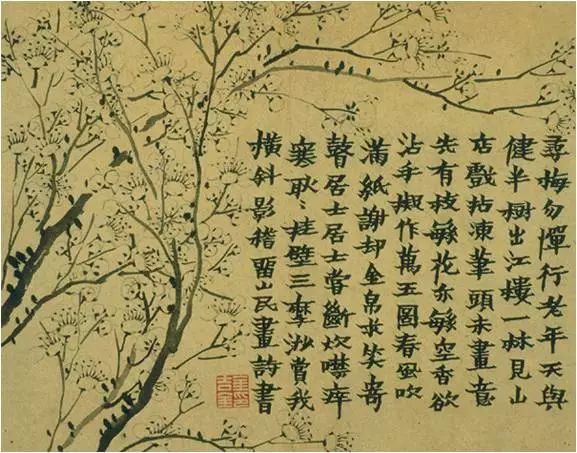 尋梅勿憚行老年天與
健半樹出江樓一林見山
店戲拈凍筆頭未畫意
先有枝繁花亦繁空香欲
沾手掇作萬玉圖春風吹
滿紙謝却金帛求笑寄
瞽居士居士嘗斷炊噤瘁
寒耿〻挂壁三摩挲賞我
橫斜影稽留山民畫詩書